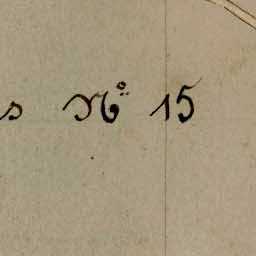 s Nº 15